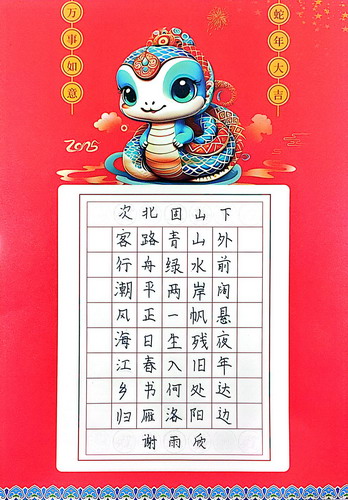 万事如意
蛇年大吉
2025
次北固山下
客路青山外
行舟绿水前
潮平两岸阔
风正一帆悬
海日生残夜
江春入旧年
乡书何处达
归雁洛阳边
谢雨欣